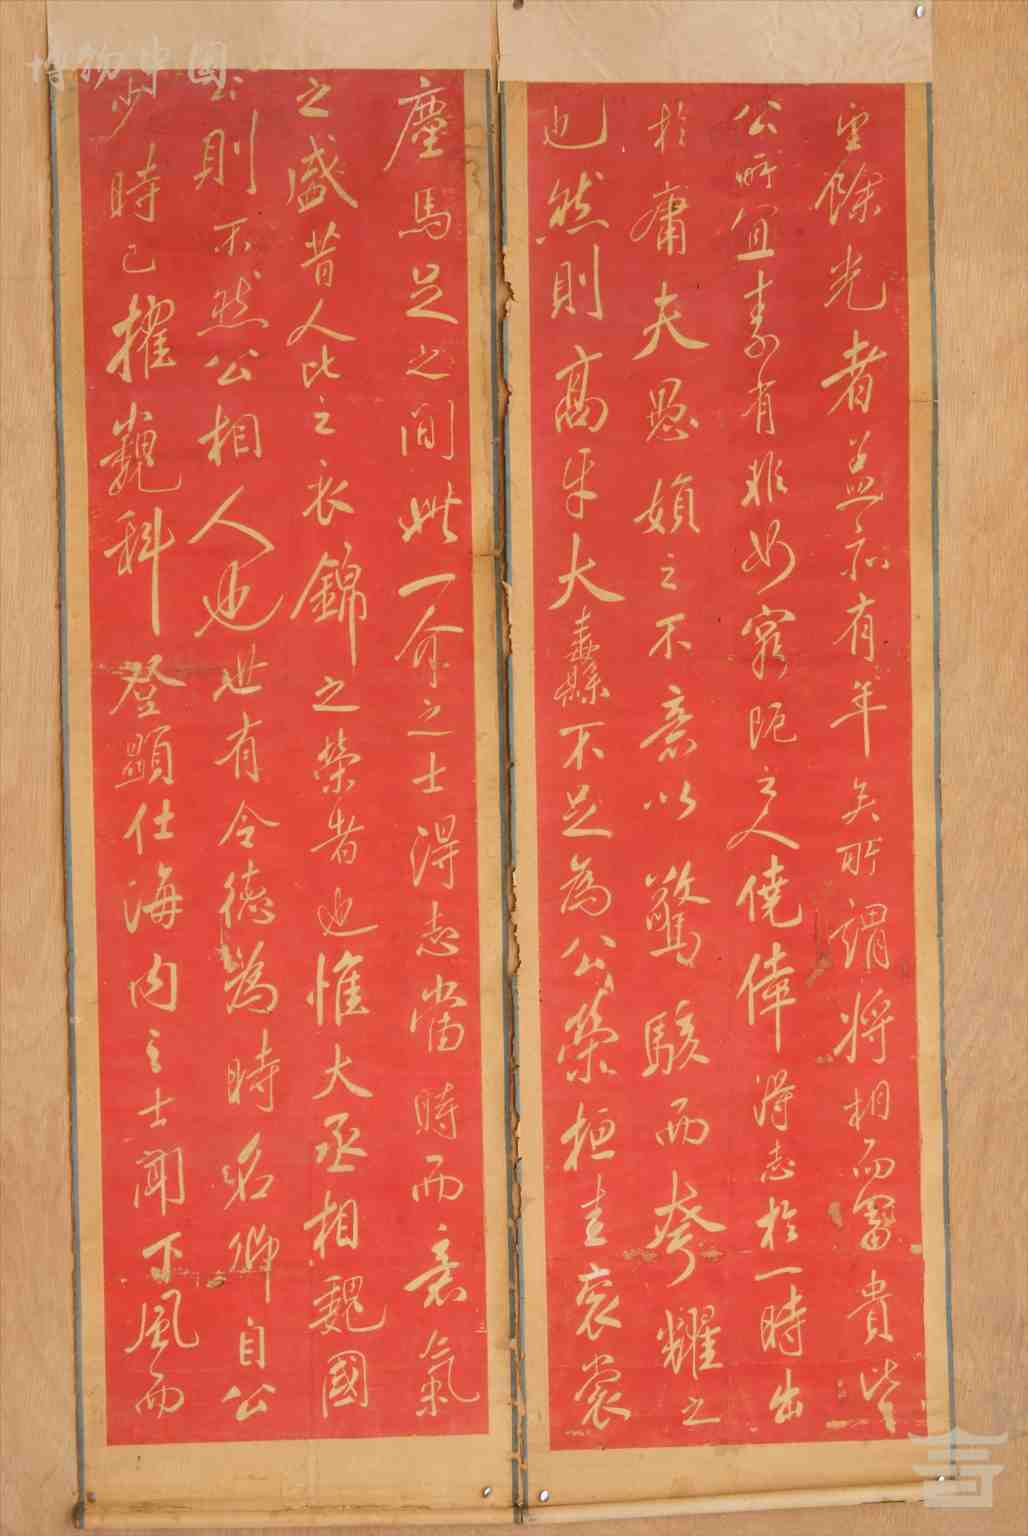 望餘光者蓋亦有年矣所謂將相而富貴皆
公所宜素有非如窮阨之人僥倖得志於一時出
於庸夫愚婦之不意以驚駭而夸耀之
也然則高牙大纛不足為公榮桓圭袞裳
塵馬足之間此一介之士得志當時而意氣
之盛昔人比之衣錦之榮者也惟大丞相魏國
公則不然公相人也世有令德為時名卿自公
少時已擢巍科登顯仕海内之士聞下風而
博物中国